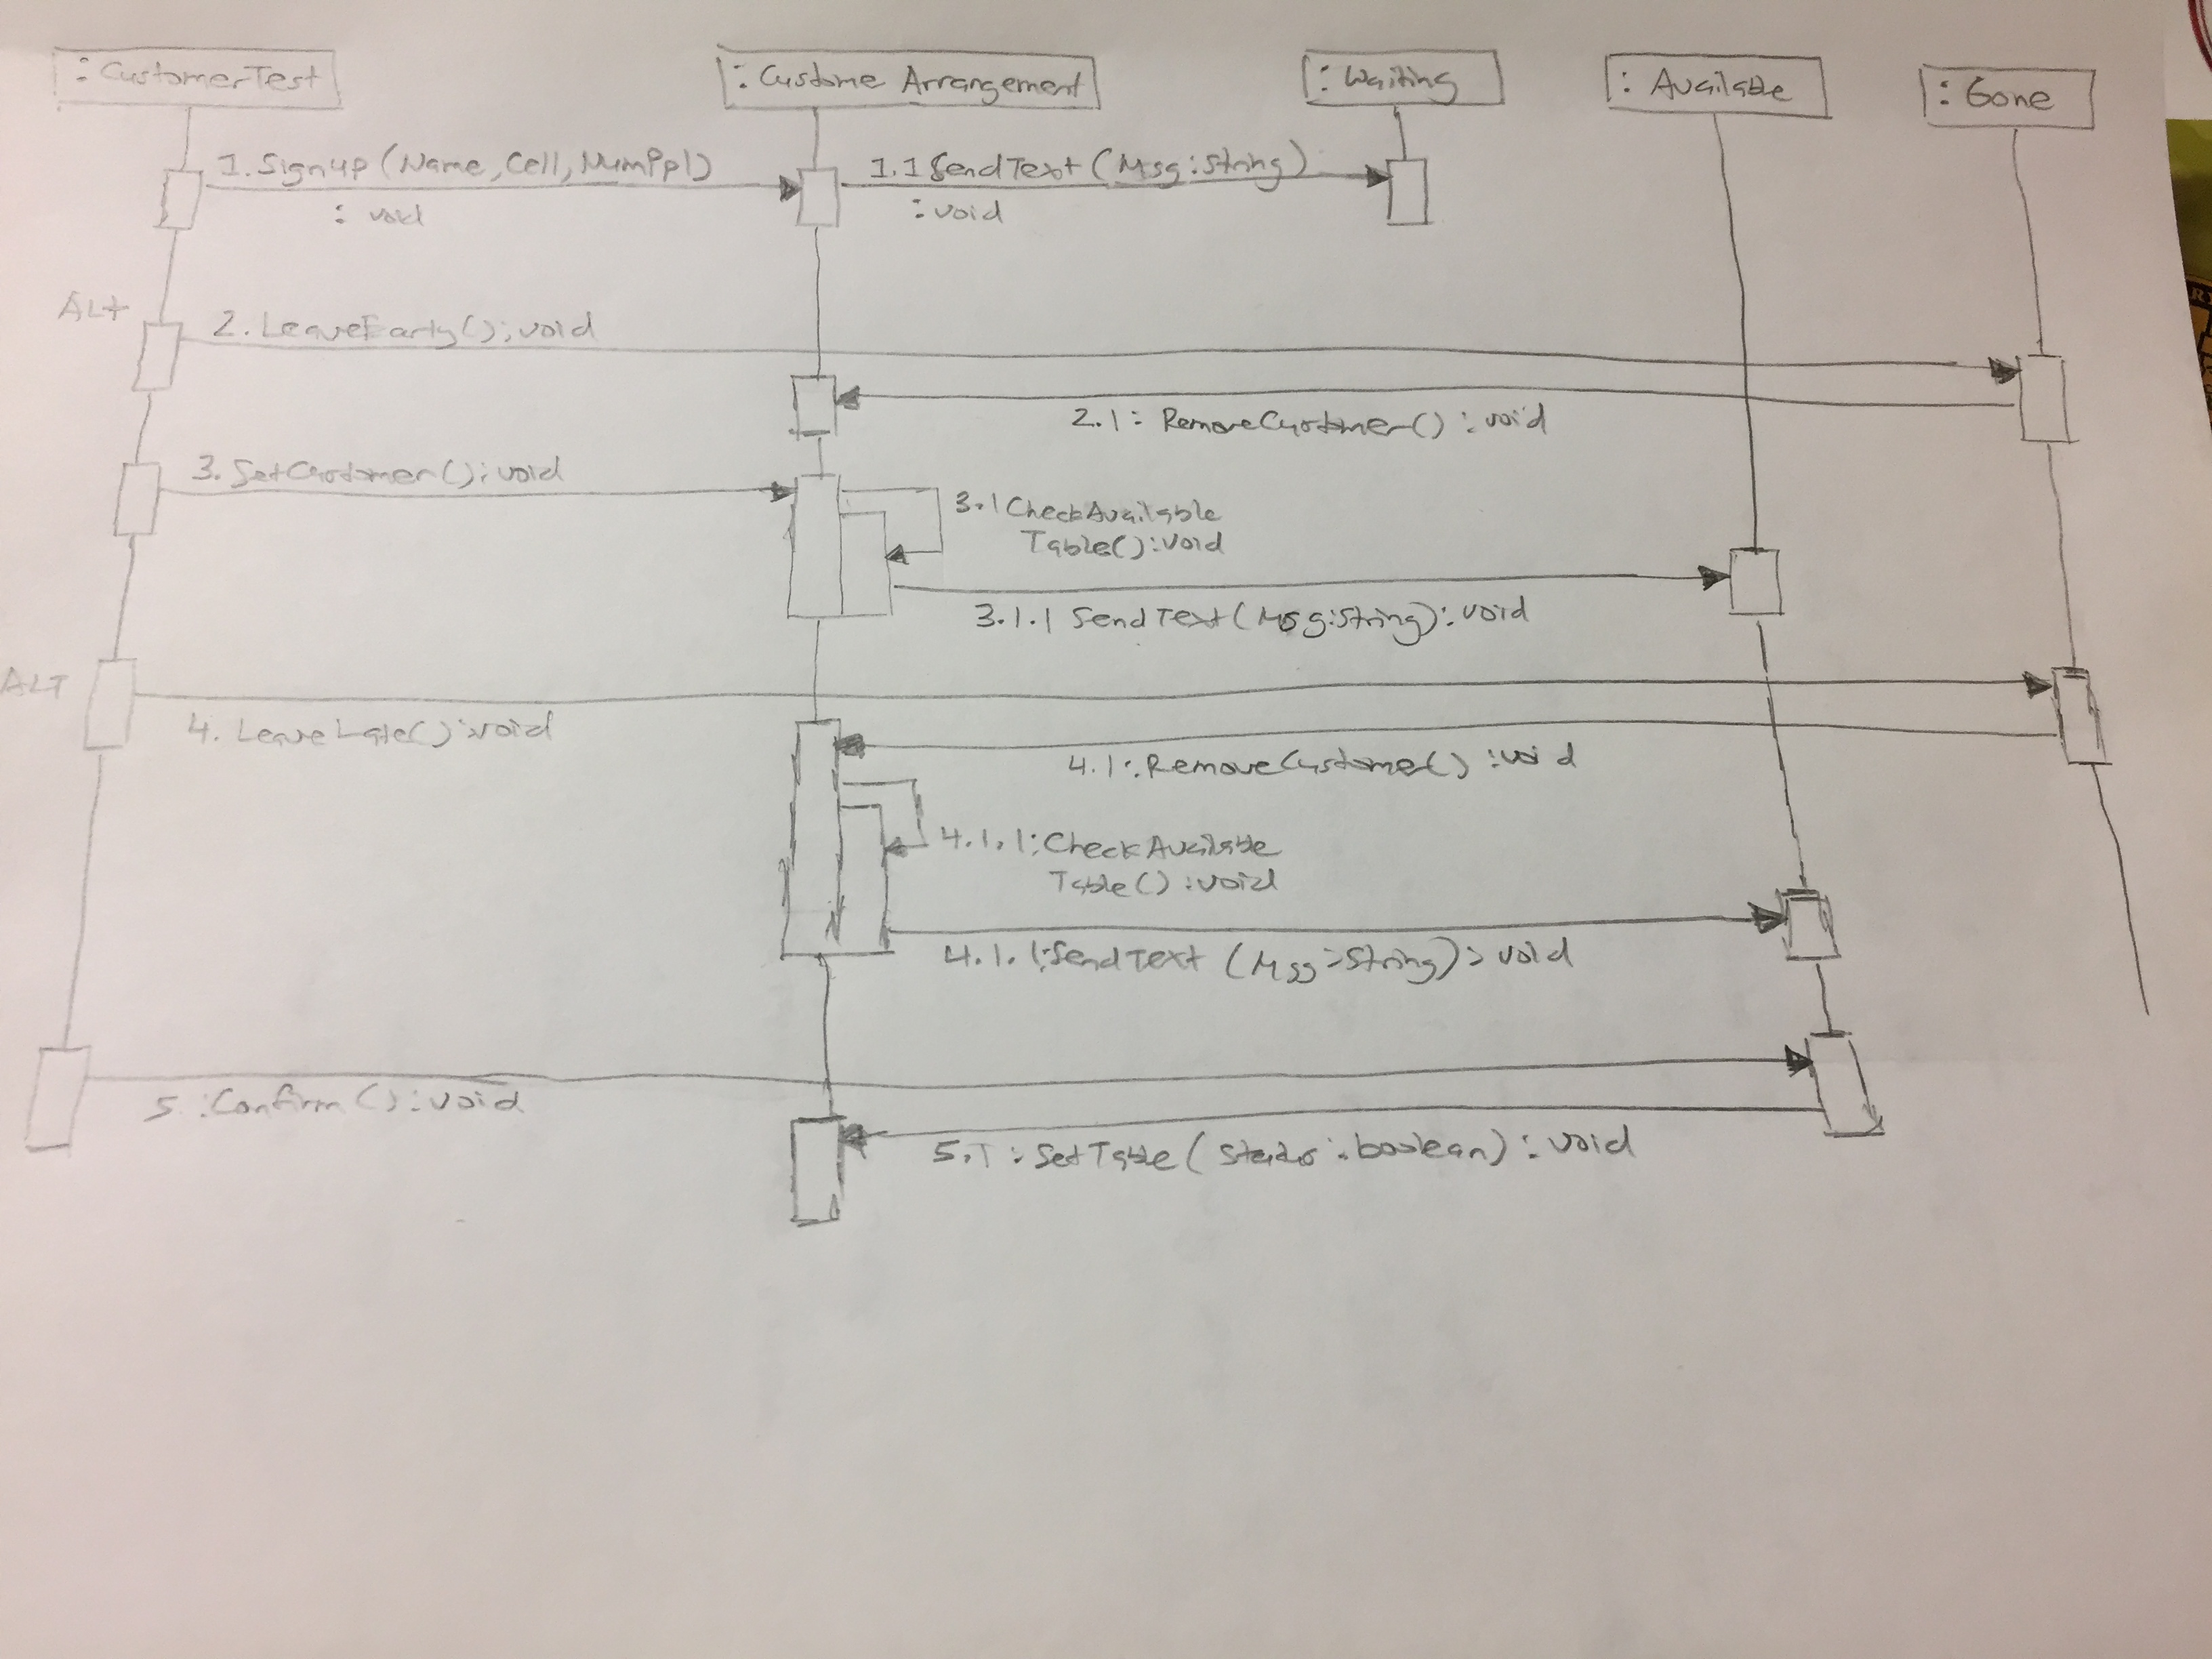 : CustomerTest
: Custome Arrangement
: Waiting
: Available
: Gone
1. Signup (Name, Cell, NumPpl)
: void
1.1 SendText (Msg : String)
: void
ALT
2. LeaveEarly() : void
2.1 : RemoveCustomer() : void
3. SetCustomer() : void
3.1 CheckAvailable
Table() : void
3.1.1 SendText (Msg : String) : void
ALT
4. LeaveLate() : void
4.1 : RemoveCustomer() : void
4.1.1 : CheckAvailable
Table() : void
4.1.1 : SendText (Msg : String) : void
5 : Confirm () : void
5.1 : SetTable ( Status : boolean) : void